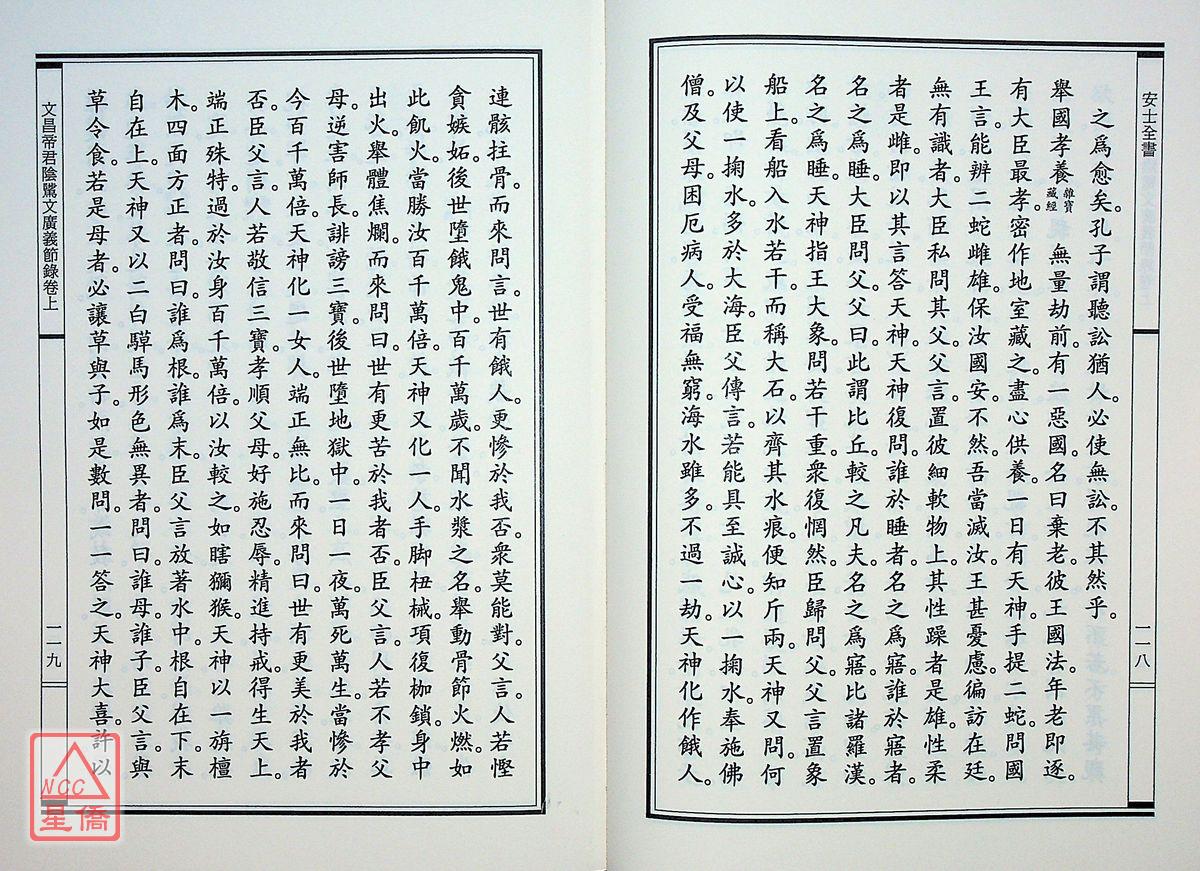 安士全書
一一八
之爲愈矣。孔子謂聽訟猶人。必使無訟。不其然乎。
舉國孝養雜寶藏經 無量劫前。有一惡國。名曰棄老。彼王國法。年老即逐。
有大臣最孝。密作地室藏之。盡心供養。一日有天神。手提二蛇。問國
王言。能辨二蛇雌雄。保汝國安。不然吾當滅汝。王甚憂慮。徧訪在廷。
無有識者。大臣私問其父。父言。置彼細軟物上。其性躁者是雄。性柔
者是雌。即以其言答天神。天神復問。誰於睡者。名之爲寤。誰於寤者。
名之爲睡。大臣問父。父曰。此謂比丘。較之凡夫。名之爲寤。比諸羅漢。
名之爲睡。天神指王大象。問若干重。衆復惘然。臣歸問父。父言置象
船上。看船入水若干。而稱大石。以齊其水痕。便知斤兩。天神又問。何
以使一掬水。多於大海。臣父傳言。若能具至誠心。以一掬水。奉施佛
僧。及父母。困厄病人。受福無窮。海水雖多。不過一劫。天神化作餓人。
連骸拄骨。而來問言。世有餓人。更慘於我否。衆莫能對。父言。人若慳
貪嫉妬。後世墮餓鬼中。百千萬歲。不聞水漿之名。舉動骨節火燃。如
此飢火。當勝汝百千萬倍。天神又化一人。手脚杻械。項復枷鎖。身中
出火。舉體焦爛。而來問曰。世有更苦於我者否。臣父言。人若不孝父
母。逆害師長。誹謗三寶。後世墮地獄中。一日一夜。萬死萬生。當慘於
今百千萬倍。天神化一女人。端正無比。而來問曰。世有更美於我者
否。臣父言。人若敬信三寶。孝順父母。好施忍辱。精進持戒。得生天上。
端正殊特。過於汝身百千萬倍。以汝較之。如瞎獼猴。天神以一旃檀
木。四面方正者。問曰。誰爲根。誰爲末。臣父言。放著水中。根自在下。末
自在上。天神又以二白騲馬。形色無異者。問曰。誰母。誰子。臣父言。與
草令食。若是母者。必讓草與子。如是數問。一一答之。天神大喜。許以
文昌帝君陰騭文廣義節錄卷上
一一九
NCC
星僑